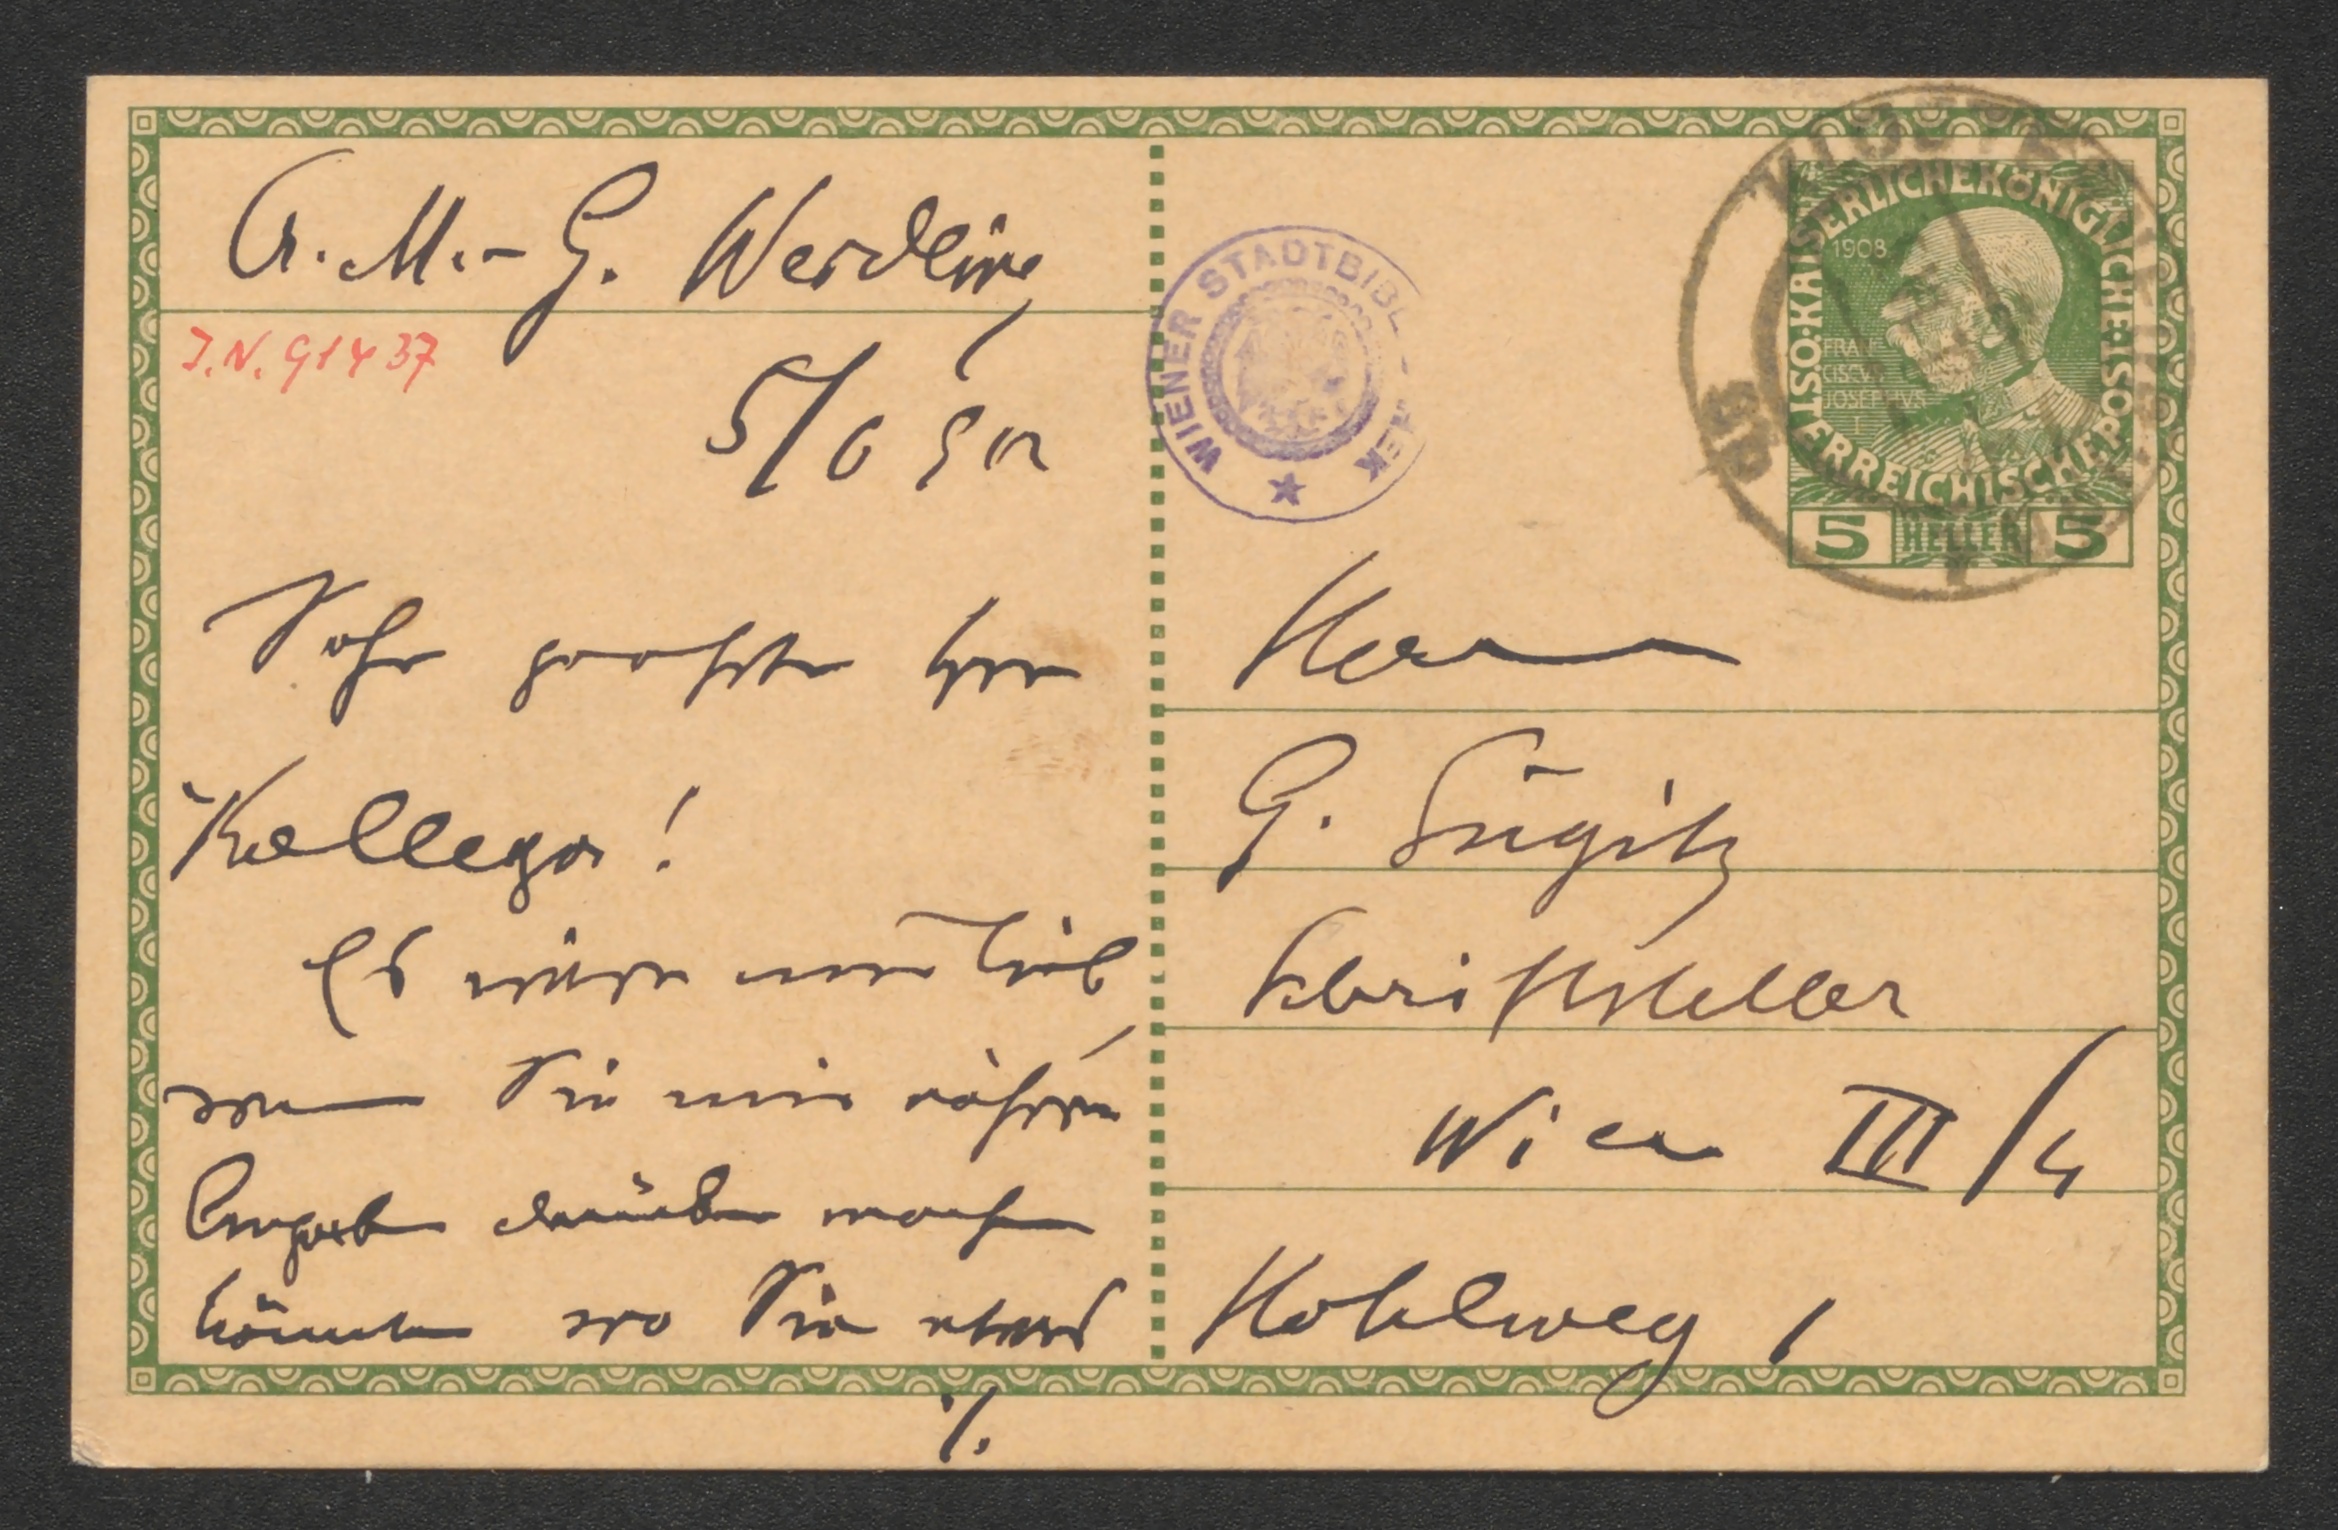 A. M.-G. Werdling
J.N. 91437
5/6 912
Sehr geehrter Herr
Kollega!
Es wäre mir lieb
wenn Sie mir nähere
Angaben darüber machen
könnten wo Sie etwas
./.
WIENER STADTBIBL - HEK
KAISERLICHEKÖNIGLICHE
ÖSTERREICHISCHEPOST
1908
FRAN
CISCVS
JOSEPHVS
I
5 HELLER 5
Herrn
G. Gugitz
Schriftsteller
Wien III/4
Hohlweg 1